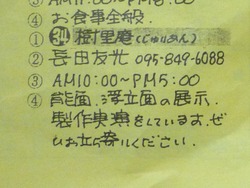 ③AM11:00〜PM8:00
お食事全般.
①㉞樹里庵(じゅりあん)
②長田友光 095-849-6088
③AM10:00〜PM5:00
④能面、浮立面の展示.
製作実演をしています。ぜ
ひお立ち寄りください.